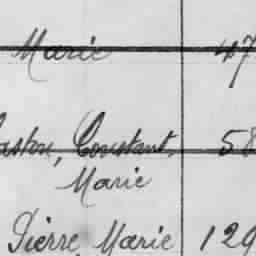 Marie 47
Gaston, Constant, 58
Marie
Pierre, Marie 129